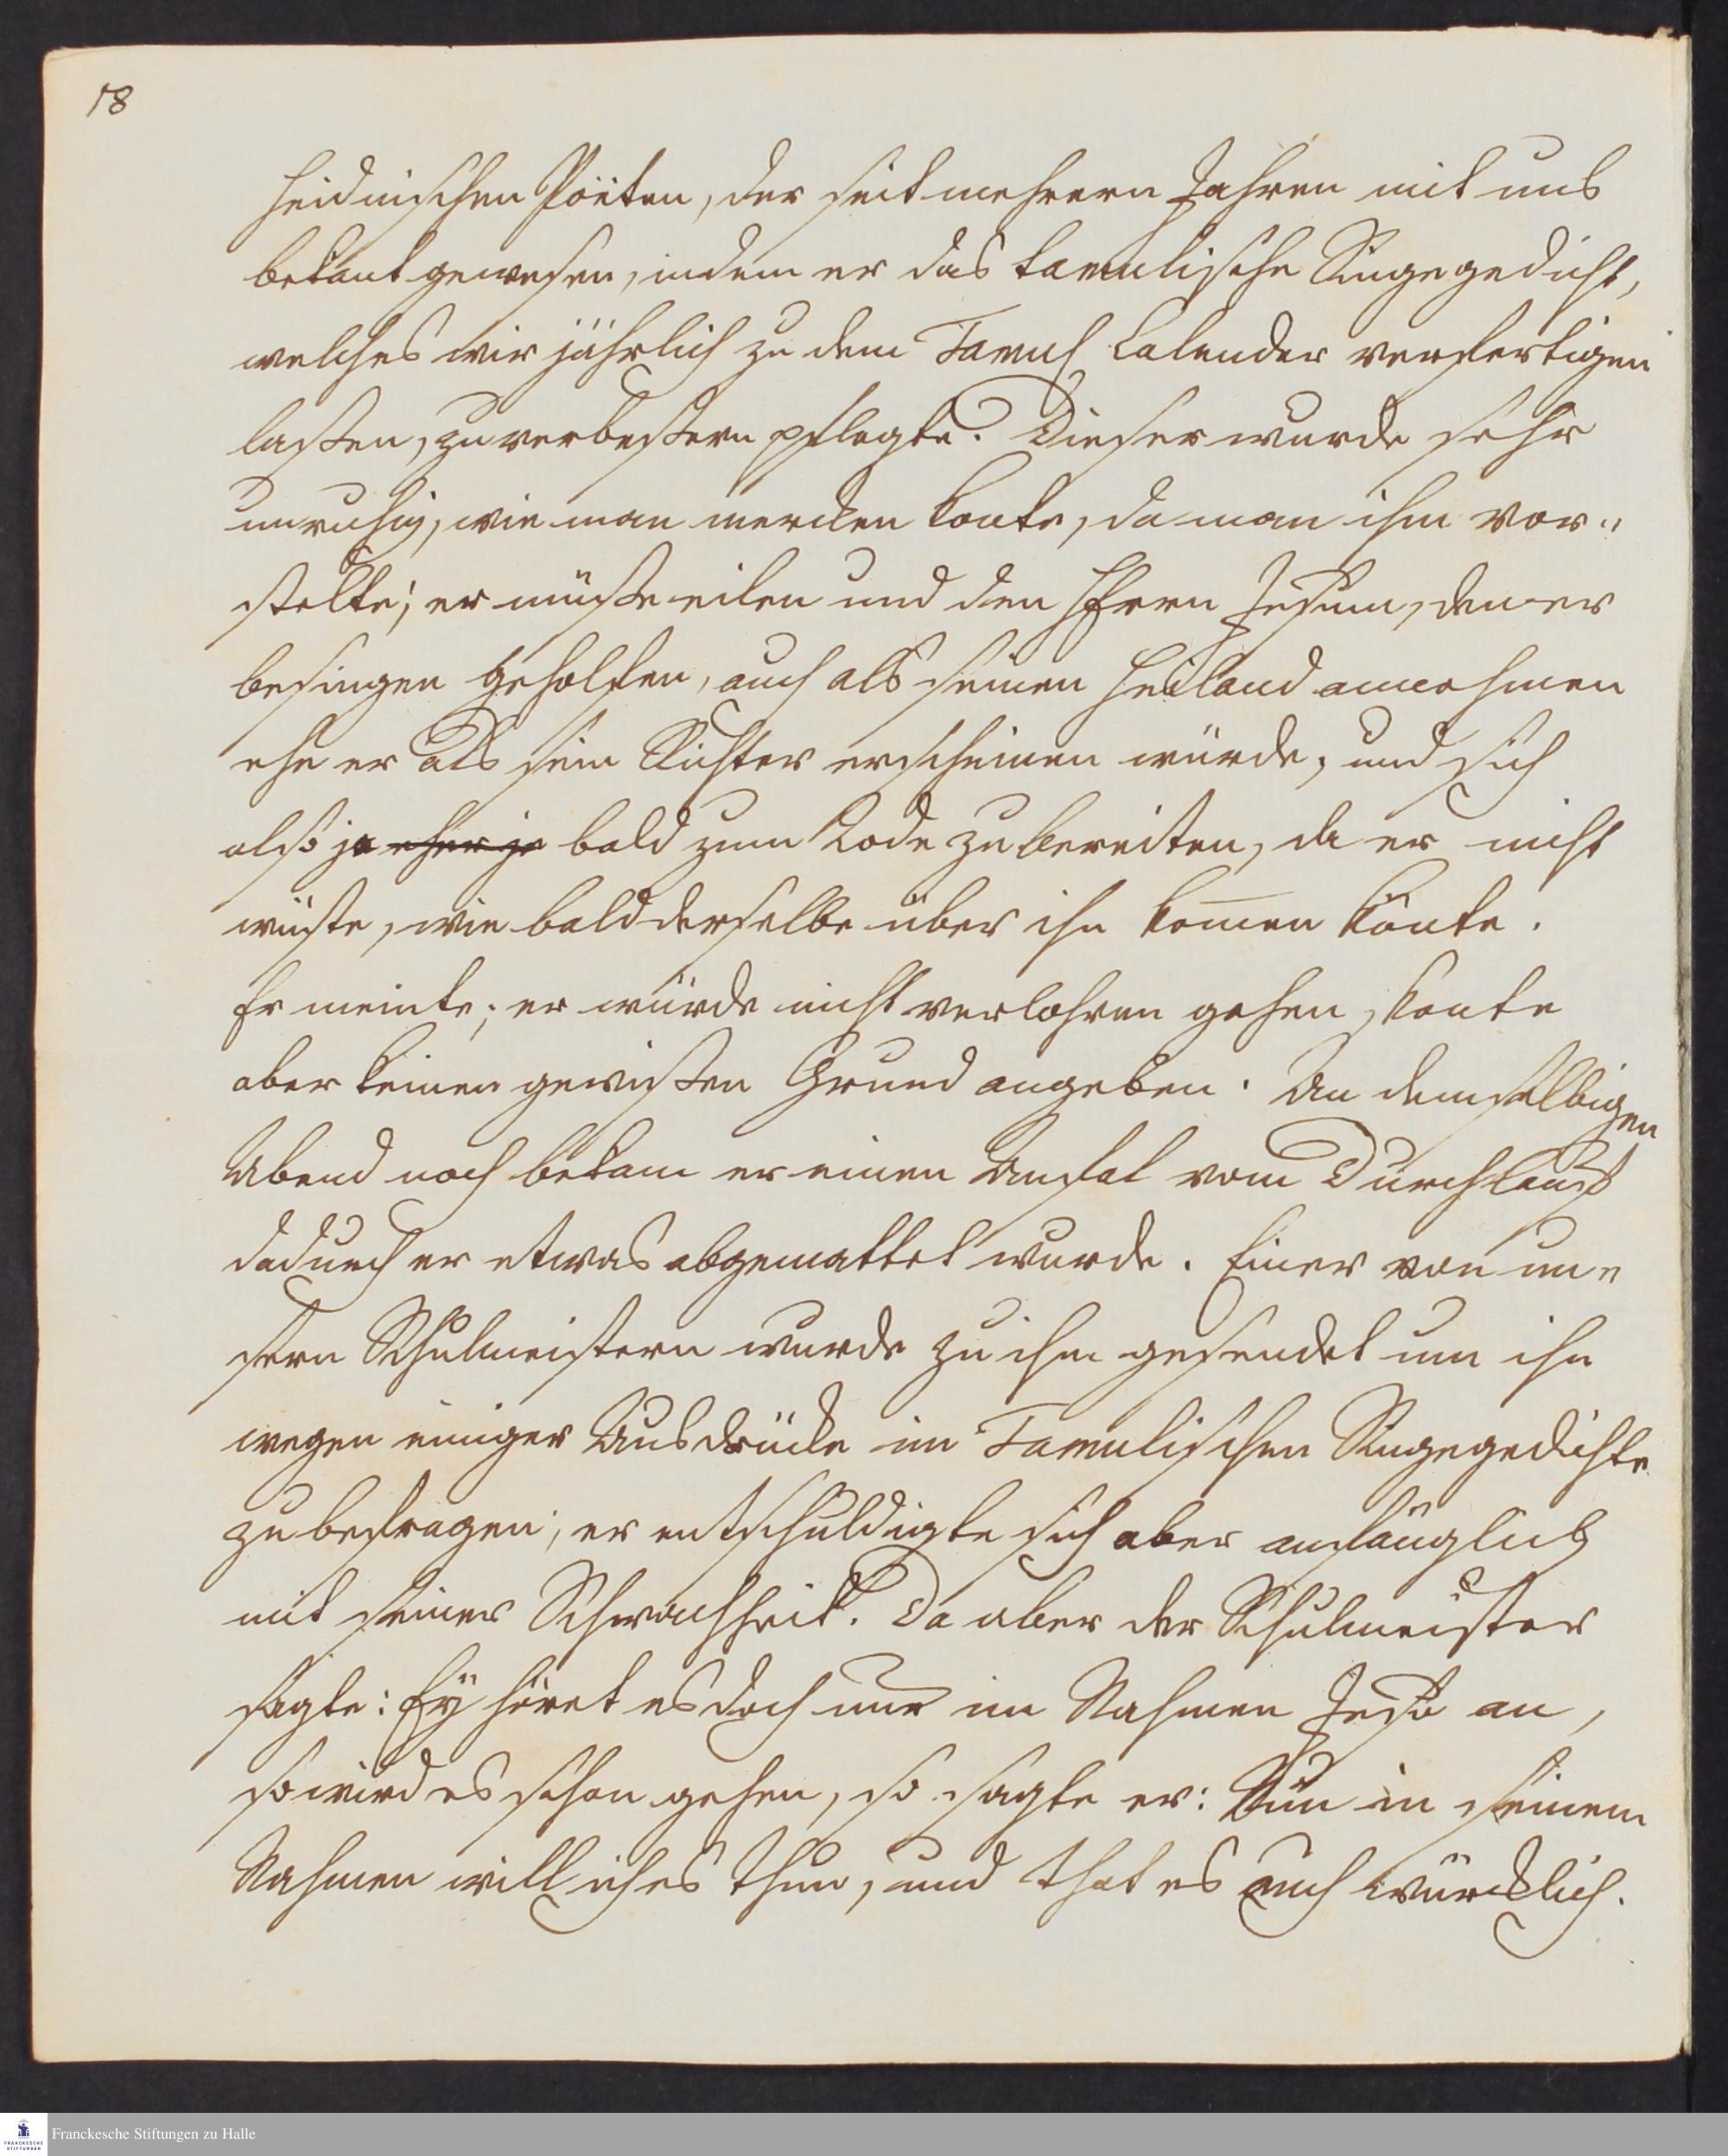 18
heidnischen Poëten, der seit mehrern Jahren mit uns
bekant gewesen, indem er das tamulische Singegedicht,
welches wir jährlich zu dem Tamul Calender verfertigen
laßen, zu verbeßern pflegte. Dieser wurde sehr
unruhig, wie man mercken konte, da man ihm vor-
stelte; er müße eilen und den HErrn Jesum, den er
besingen geholfen, auch als seinen Heiland annehmen
ehe er als sein Richter erscheinen würde; und sich
also ja eher je bald zum Tode zu bereiten, da er nicht
wüste, wie bald derselbe über ihn kom̄en könte.
Er meinte; er würde nicht verlohren gehen, konte
aber keinen gewißen Grund angeben. An demselbigen
Abend noch bekam er einen Anfal vom Durchlauf
dadurch er etwas abgemattet wurde. Einer von un-
sern Schulmeistern wurde zu ihm gesendet um ihn
wegen einiger Ausdrücke im Tamulischen Singegedichte
zu befragen; er entschuldigte sich aber anfänglich
mit seiner Schwachheit. Da aber der Schulmeister
sagte: Ey höret es doch nur im Nahmen Jesu an,
so wird es schon gehen, so sagte er: Nun in seinem
Nahmen will ich es thun, und that es auch würcklich.
Franckesche Stiftungen zu Halle
FRANCKESCHE
STIFTUNGEN